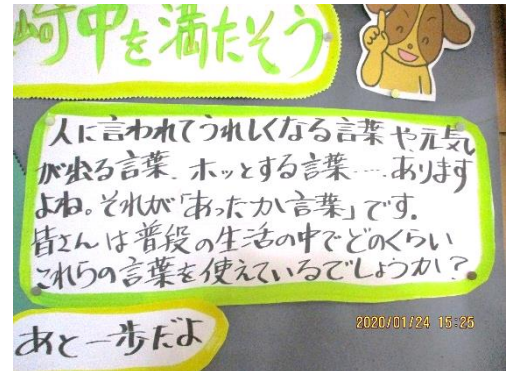 崎中を満たそう
人に言われてうれしくなる言葉や元気
が出る言葉、ホッとする言葉……あります
よね。それが「あったか言葉」です。
皆さんは普段の生活の中でどのくらい
これらの言葉を使えているでしょうか？
あと一歩だよ
2020/01/24 15:25